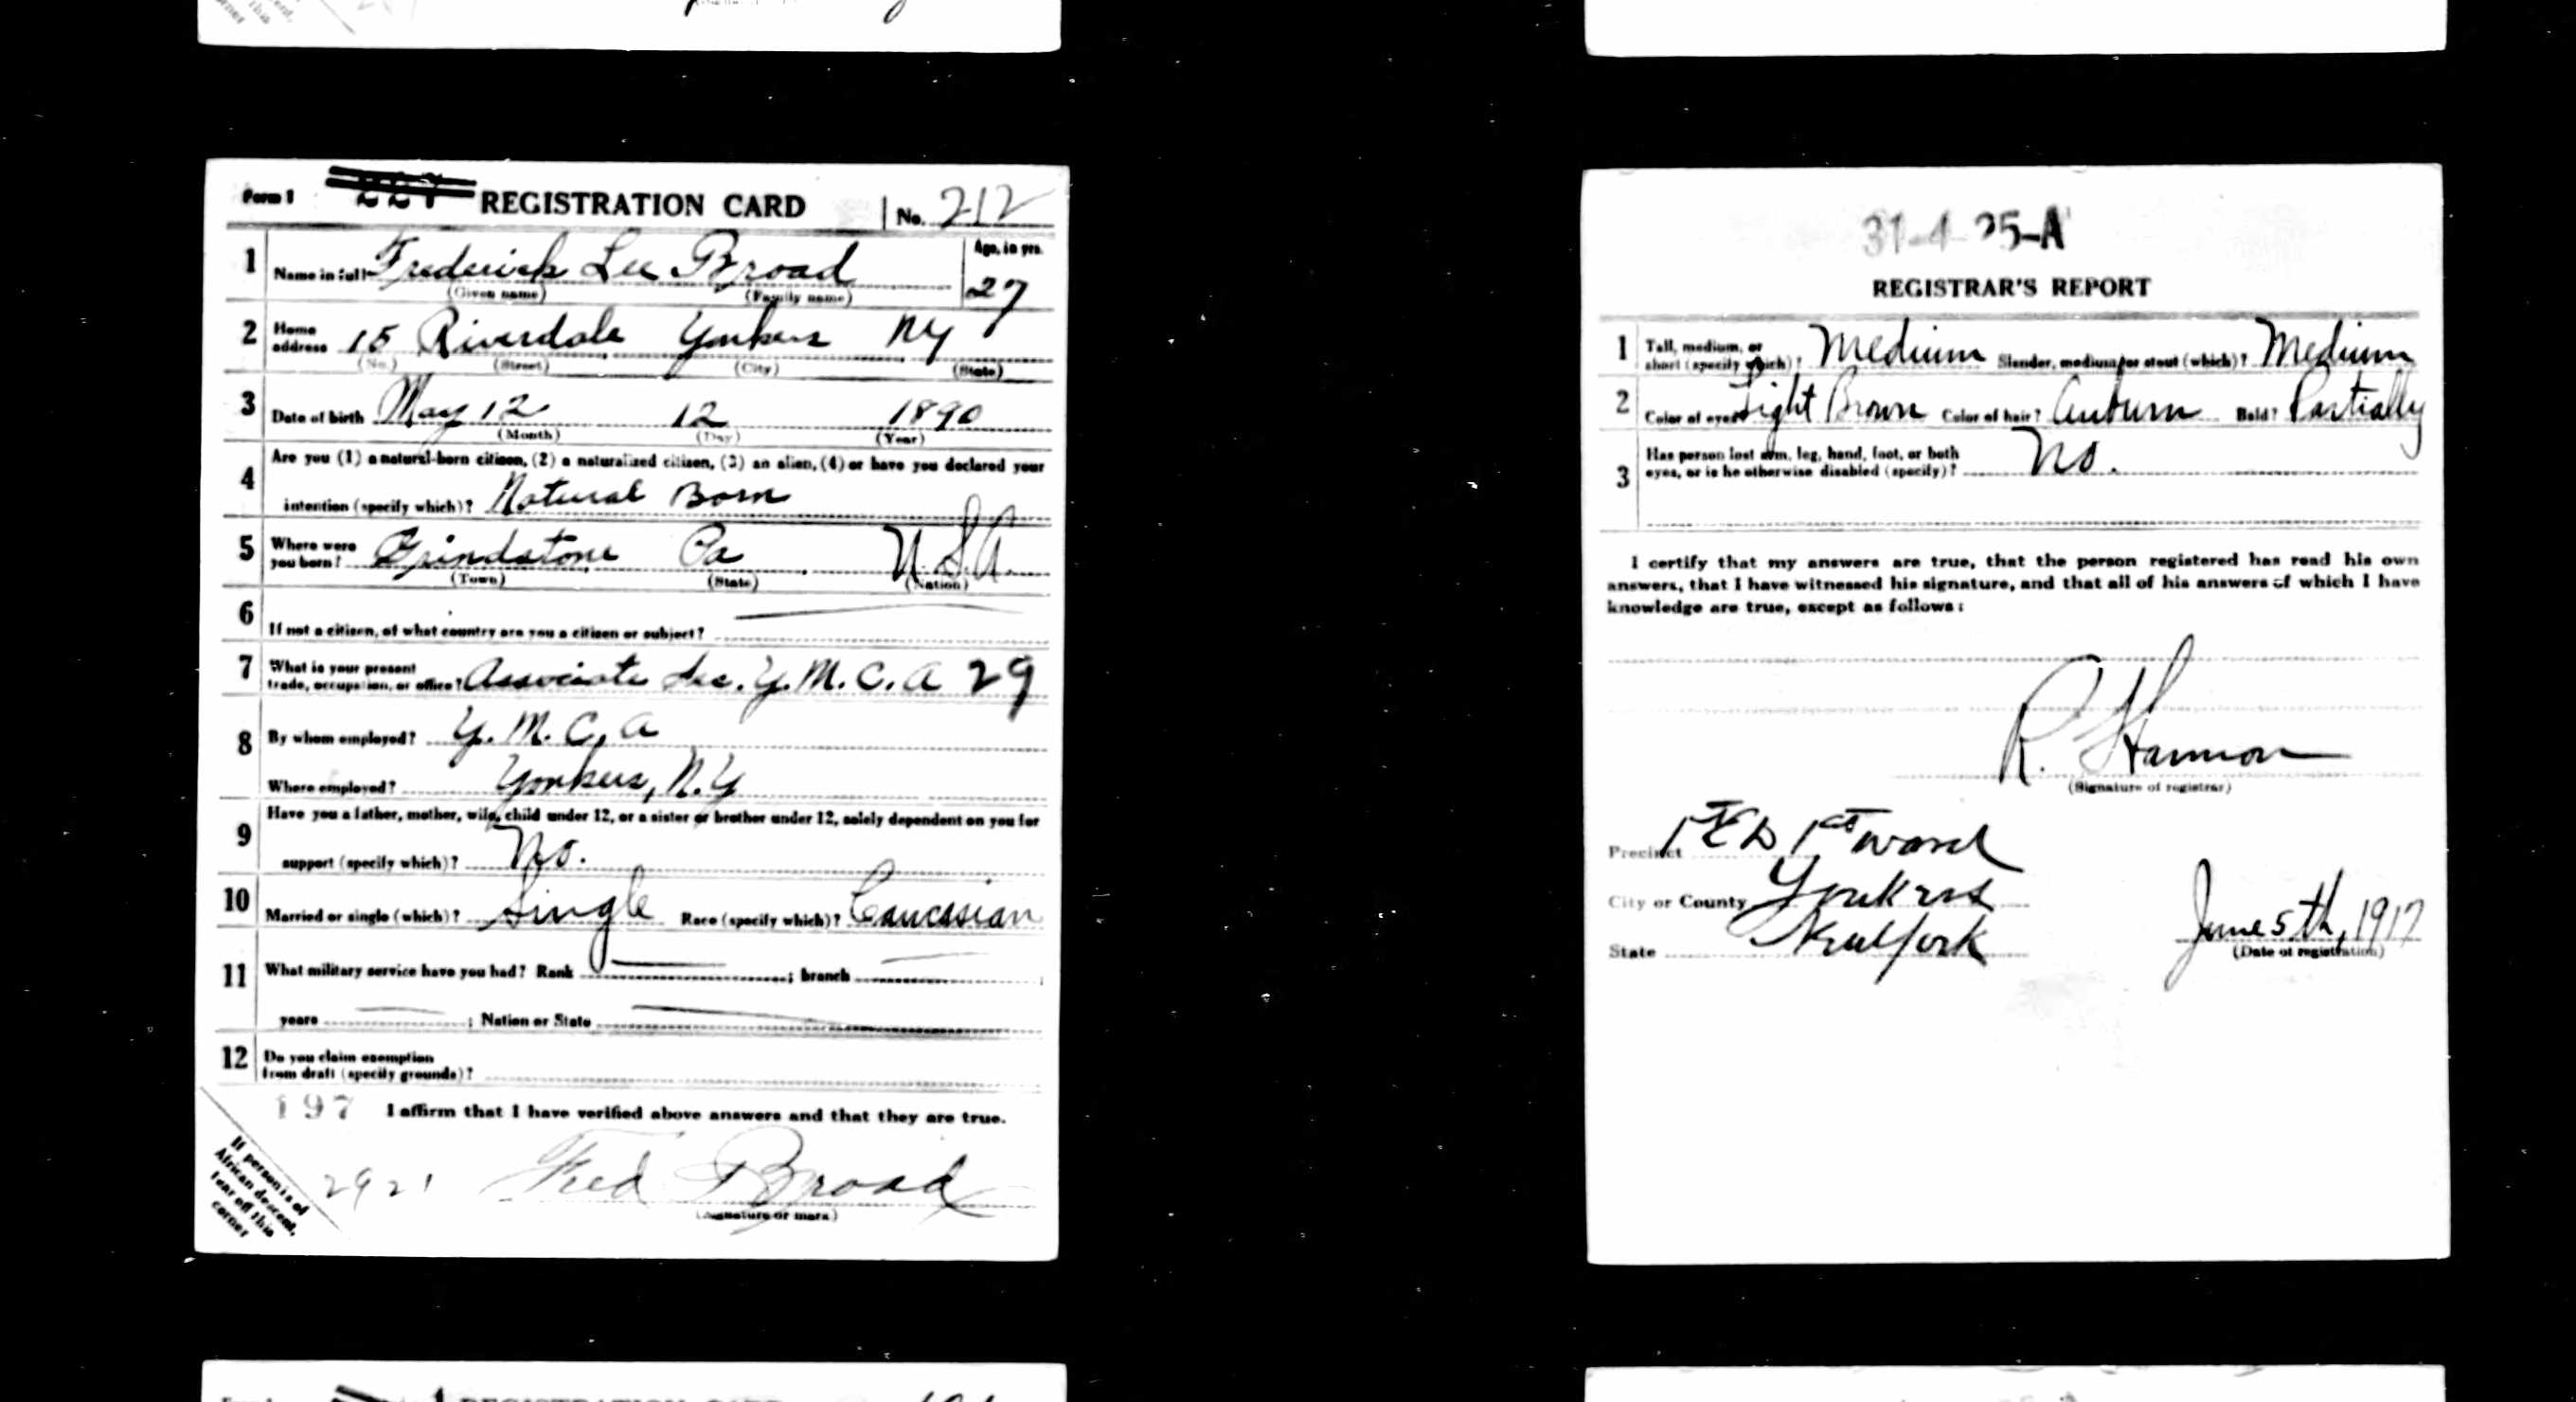 Form 1 REGISTRATION CARD No. 212
1 Name in full Frederick Lee Broad Age, in yrs. 27
(Given name) (Family name)
2 Home address 15 Riverdale Yonkers NY
(No.) (Street) (City) (State)
3 Date of birth May 12 12 1890
(Month) (Day) (Year)
4 Are you (1) a natural-born citizen, (2) a naturalized citizen, (3) an alien, (4) or have you declared your
intention (specify which)? Natural Born
5 Where were you born? Grindstone Pa U.S.A.
(Town) (State) (Nation)
6 If not a citizen, of what country are you a citizen or subject?
7 What is your present
trade, occupation, or office? Associate Sec. Y.M.C.A 29
8 By whom employed? Y.M.C.A
Where employed? Yonkers, N.Y
9 Have you a father, mother, wife, child under 12, or a sister or brother under 12, solely dependent on you for
support (specify which)? No.
10 Married or single (which)? Single Race (specify which)? Caucasian
11 What military service have you had? Rank ; branch
years ; Nation or State
12 Do you claim exemption
from draft (specify grounds)?
197 I affirm that I have verified above answers and that they are true.
2921 Fred Broad
(Signature or mark)
If person is of
African descent,
tear off this
corner
31-4-25-A
REGISTRAR'S REPORT
1 Tall, medium, or
short (specify which)? Medium Slender, medium, or stout (which)? Medium
2 Color of eyes? Light Brown Color of hair? Auburn Bald? Partially
3 Has person lost arm, leg, hand, foot, or both
eyes, or is he otherwise disabled (specify)? No.
I certify that my answers are true, that the person registered has read his own
answers, that I have witnessed his signature, and that all of his answers of which I have
knowledge are true, except as follows:
R. Hannon
(Signature of registrar)
Precinct 1st ED 1st Ward
City or County Yonkers
State New York
June 5th, 1917
(Date of registration)